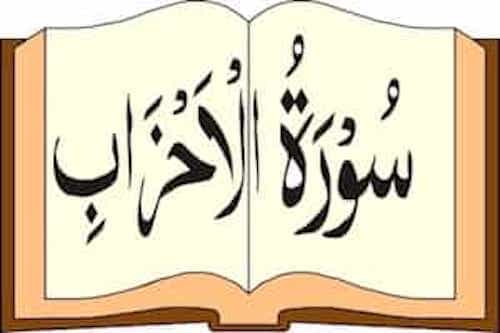 سُوْرَةُ الْاَحْزَابِ